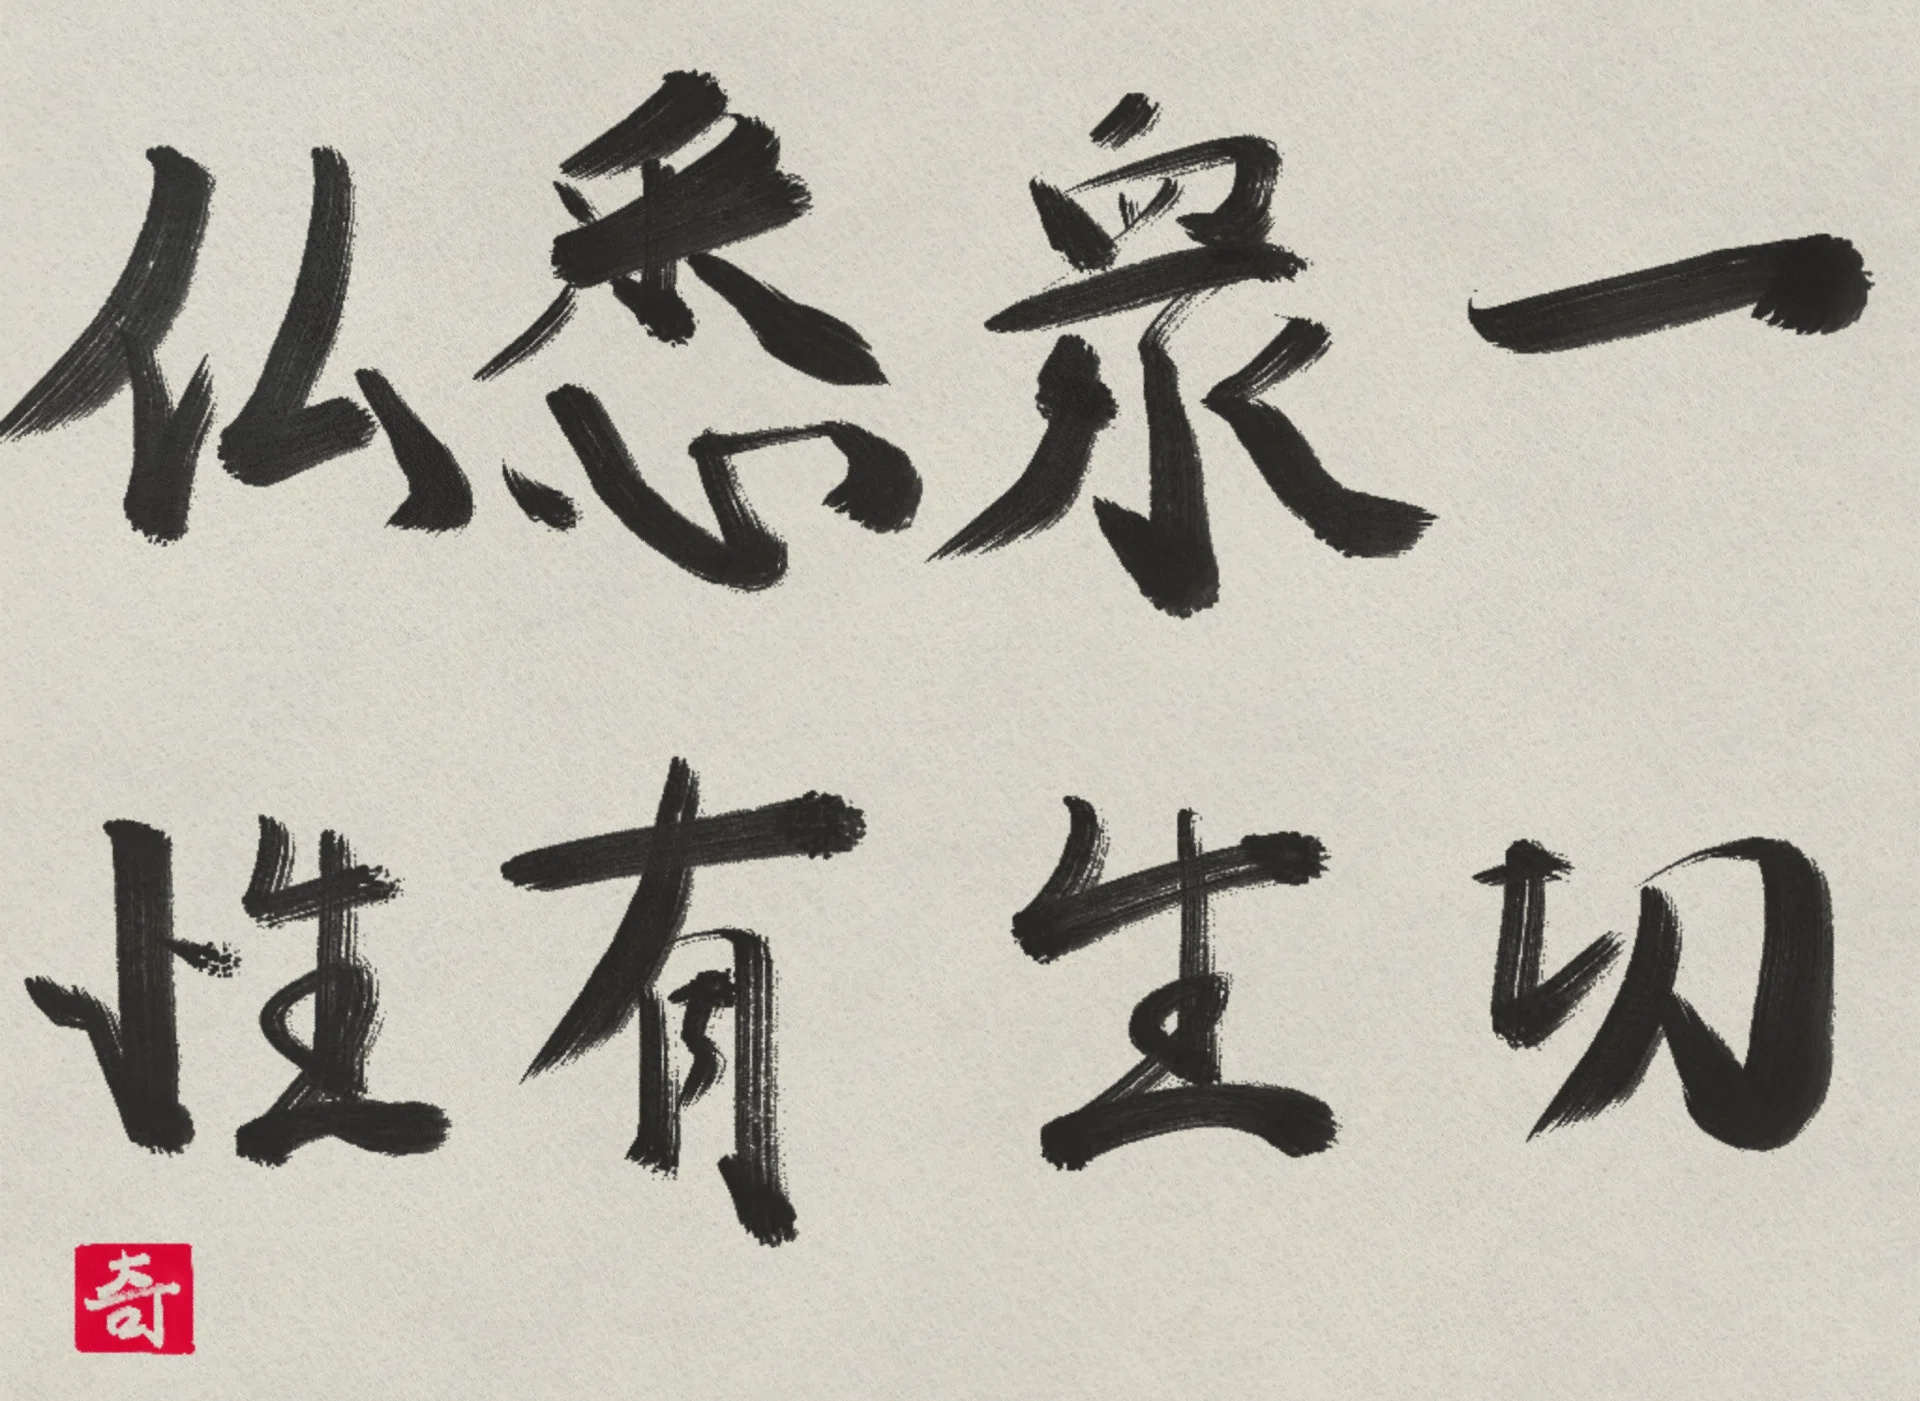 一切
衆生
悉有
仏性
奇